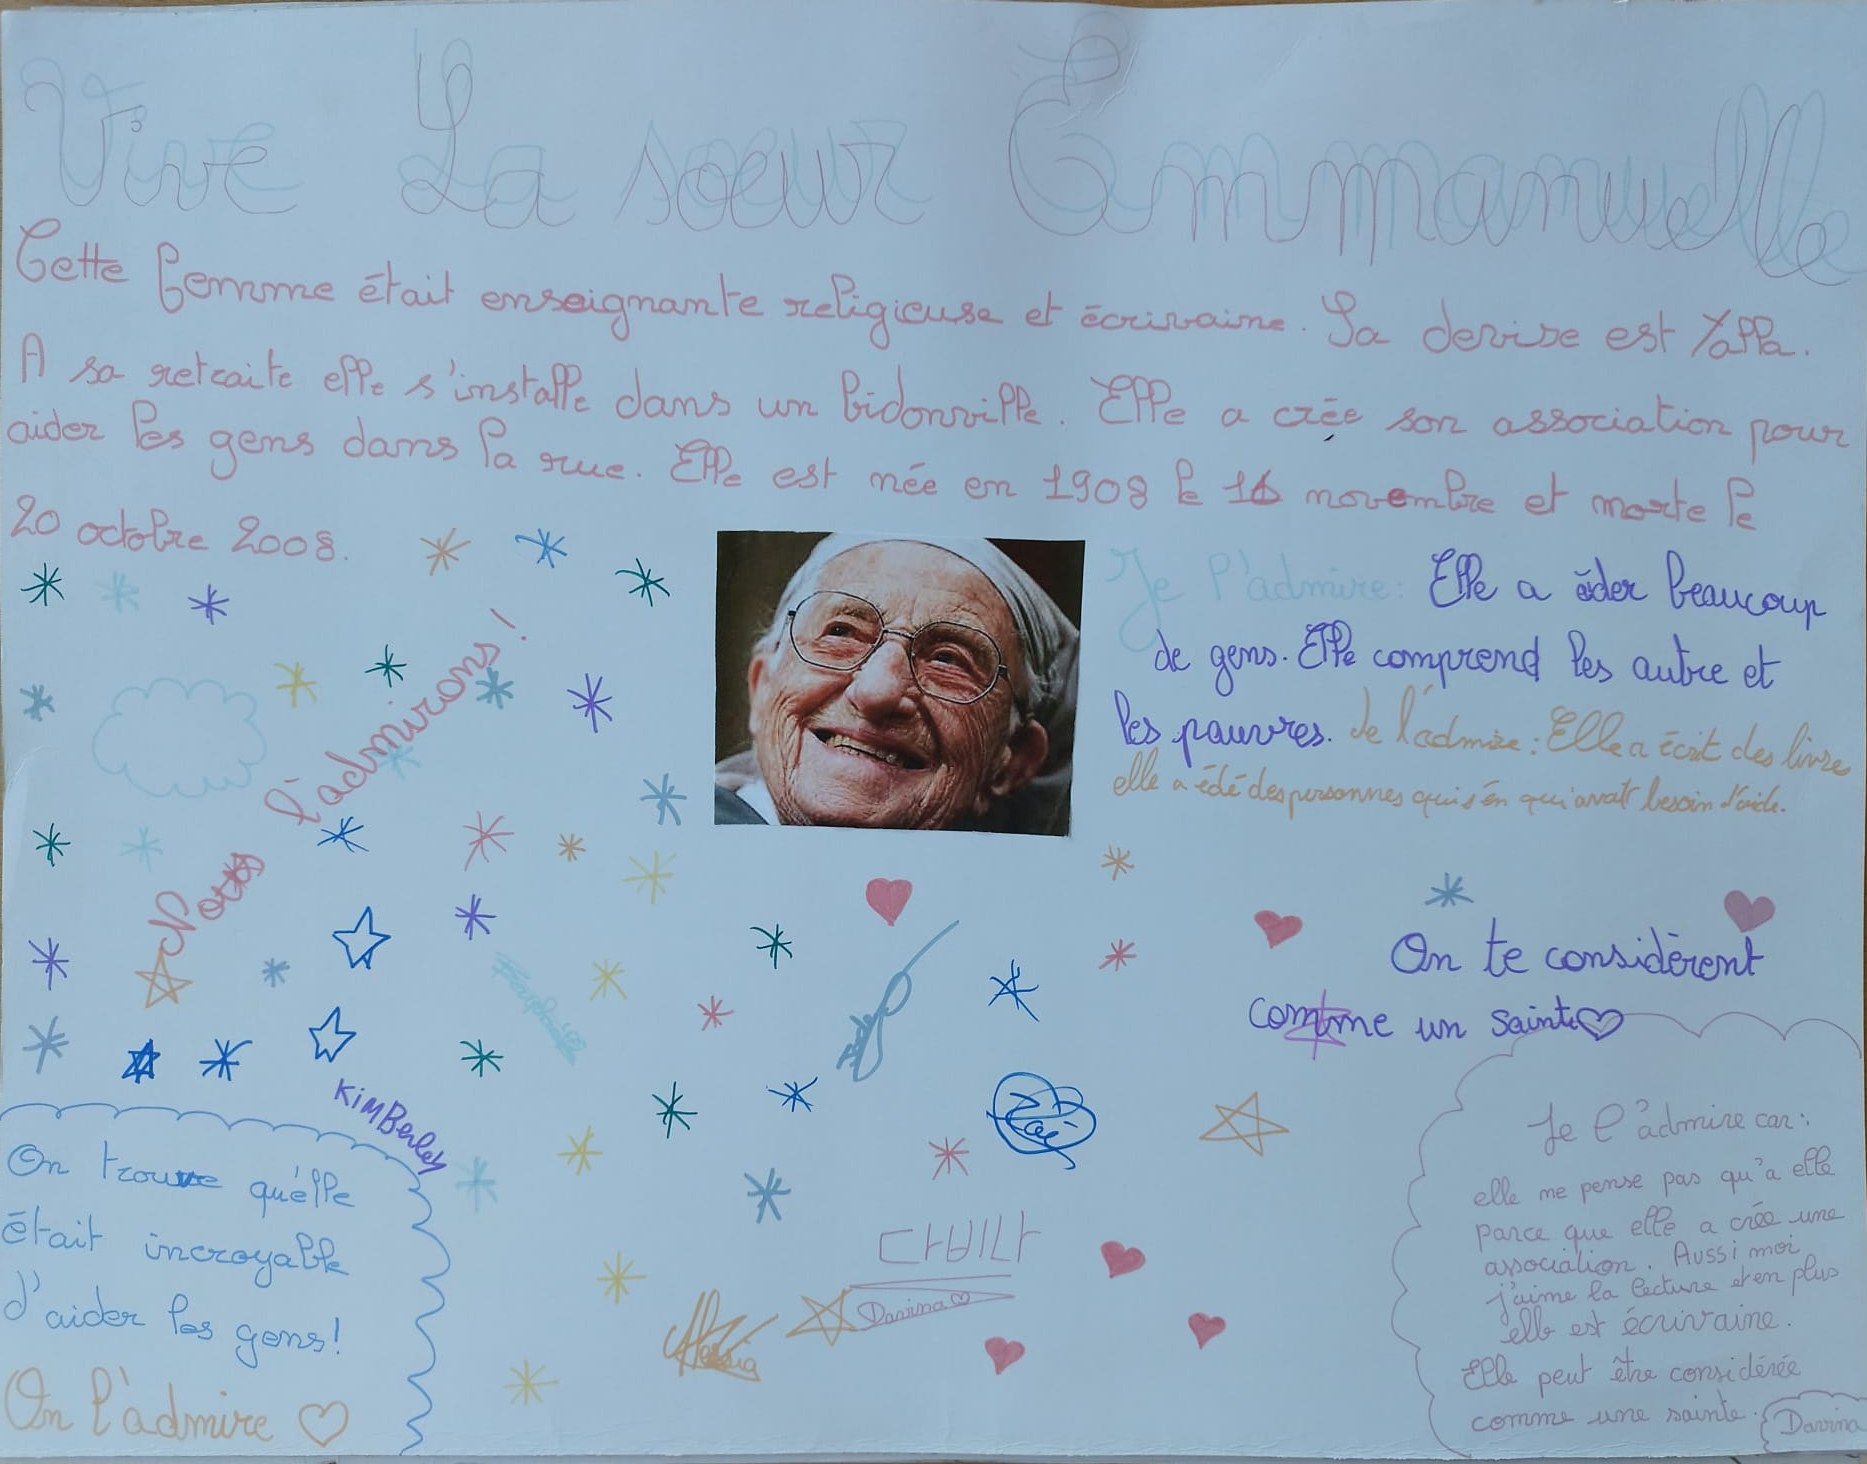 Vive La soeur Emmanuelle
Cette femme était enseignante religieuse et écrivaine. Sa devise est Yalla.
A sa retraite elle s'installe dans un bidonville. Elle a créé son association pour
aider les gens dans la rue. Elle est née en 1908 le 16 novembre et morte le
20 octobre 2008.
Je l'admire: Elle a éder beaucoup
de gens. Elle comprend les autre et
les pauvres. de l'admire: Elle a écrit des livre
elle a édé des personnes qui s'en qui avait besoin d'aide.
Nous
l'admirons!
On te considèrent
comme un saint
KimBerley
On trouve qu'elle
était incroyable
d'aider les gens!
On l'admire
CHUT!
Danina
Je l'admire car:
elle me pense pas qu'a elle
parce que elle a créé une
association. Aussi moi
j'aime la lecture et en plus
elle est écrivaine.
Elle peut être considérée
comme une sainte.
Danina